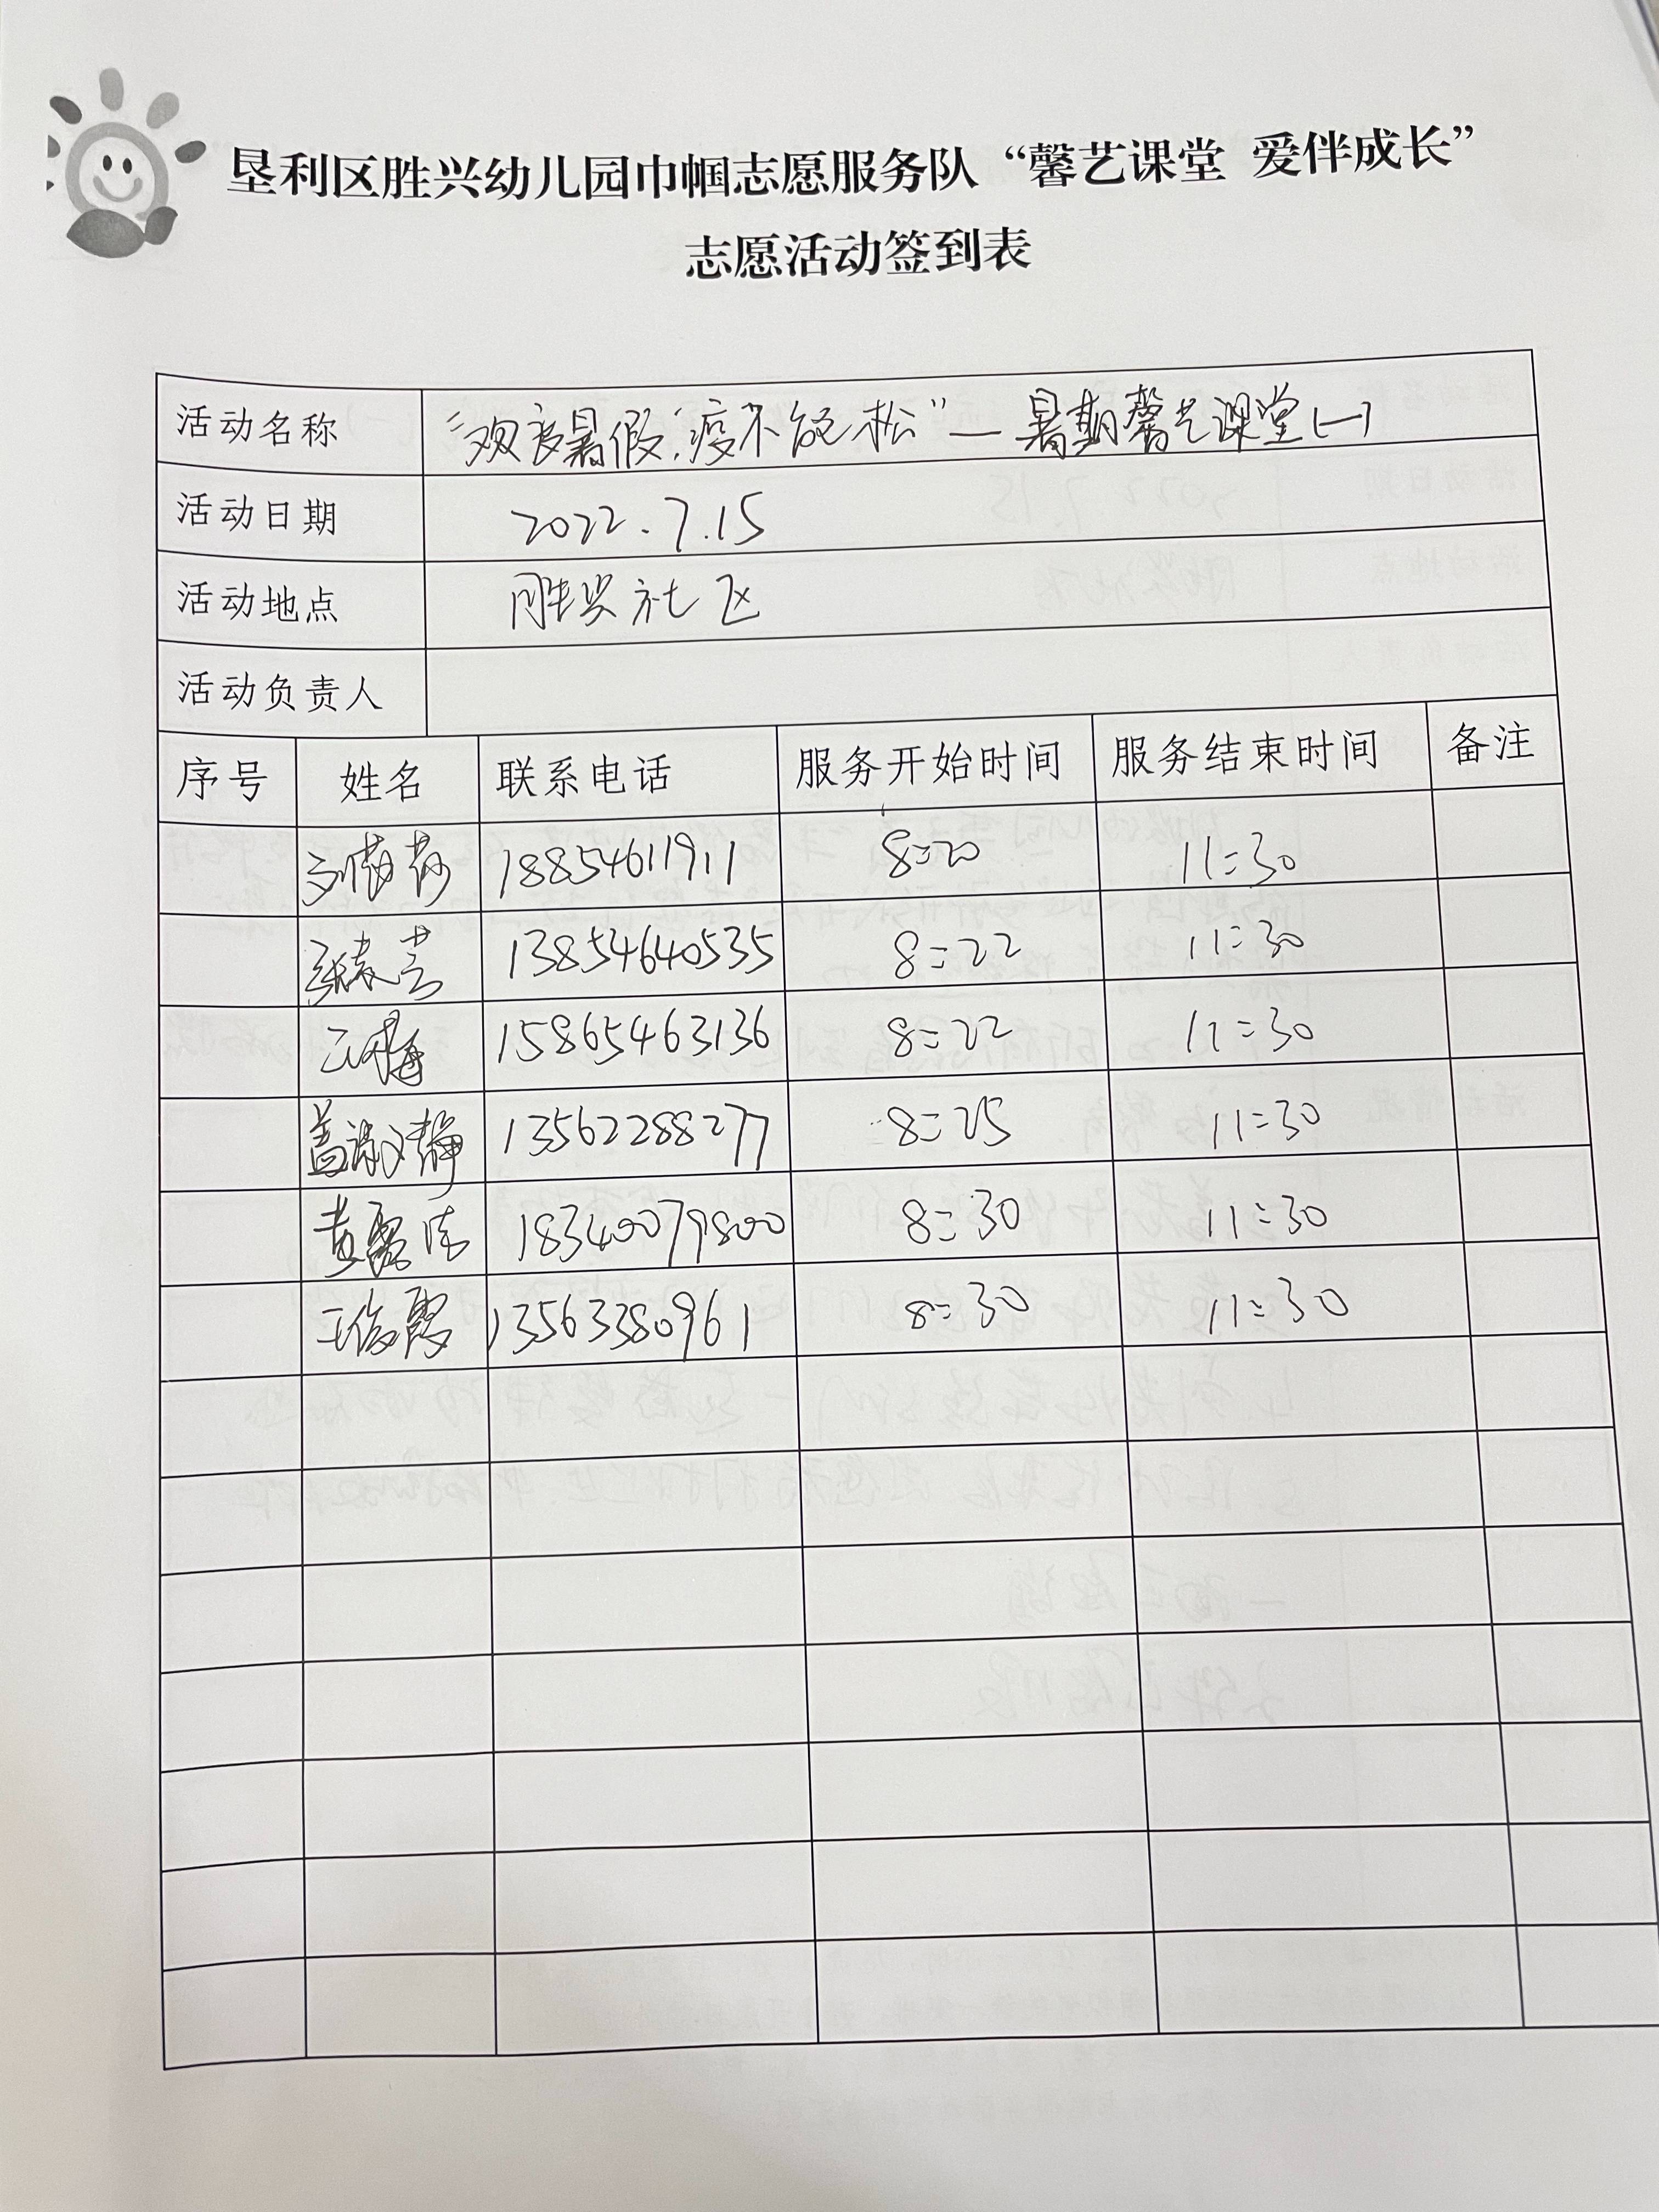 垦利区胜兴幼儿园巾帼志愿服务队“馨艺课堂 爱伴成长”
志愿活动签到表
活动名称 “欢度暑假,疫不能松”—暑期馨艺课堂(一)
活动日期 2022.7.15
活动地点 胜兴社区
活动负责人
序号 姓名 联系电话 服务开始时间 服务结束时间 备注
18854611911 8:20 11:30
13854640535 8:22 11:30
15865463136 8:22 11:30
盖淑静 13562288277 8:25 11:30
18340079800 8:30 11:30
王俊霞 13563380961 8:30 11:30